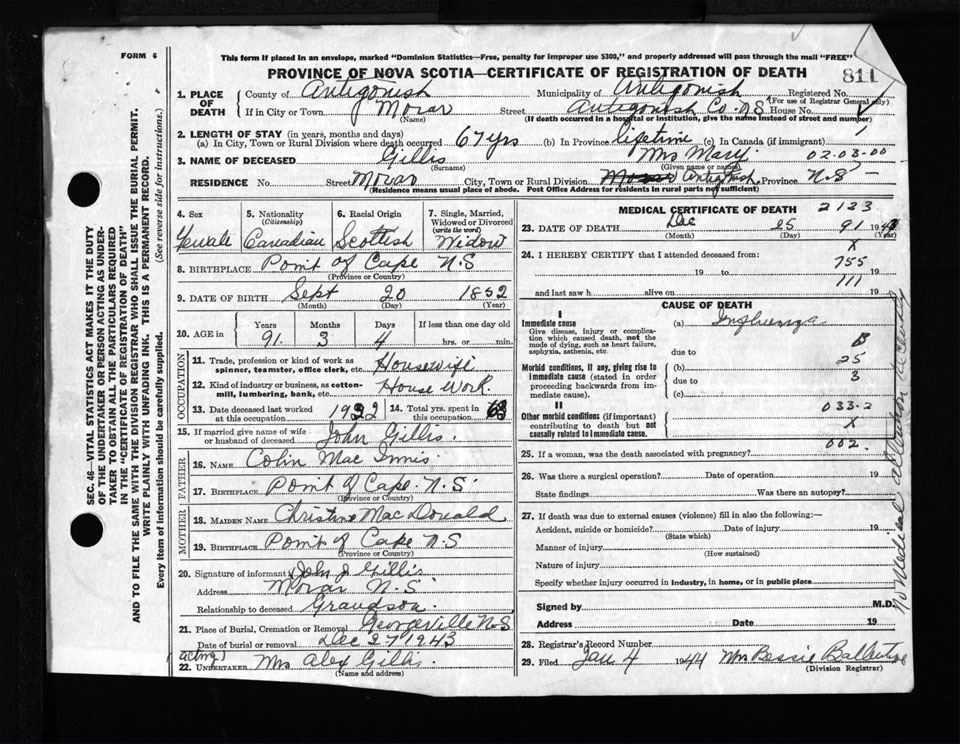 FORM 6
This form if placed in an envelope, marked "Dominion Statistics—Free, penalty for improper use $300," and properly addressed will pass through the mail "FREE"
PROVINCE OF NOVA SCOTIA—CERTIFICATE OF REGISTRATION OF DEATH
811
SEC. 46—VITAL STATISTICS ACT MAKES IT THE DUTY
OF THE UNDERTAKER OR PERSON ACTING AS UNDER-
TAKER TO OBTAIN ALL THE PARTICULARS REQUIRED
IN THE "CERTIFICATE OF REGISTRATION OF DEATH"
AND TO FILE THE SAME WITH THE DIVISION REGISTRAR WHO SHALL ISSUE THE BURIAL PERMIT.
WRITE PLAINLY WITH UNFADING INK. THIS IS A PERMANENT RECORD.
Every item of information should be carefully supplied. (See reverse side for instructions.)
1. PLACE OF DEATH
County of Antigonish Municipality of Antigonish Registered No.
(For use of Registrar General only)
If in City or Town Morar Street Antigonish Co. N.S House No.
(Name) (If death occurred in a hospital or institution, give the name instead of street and number)
2. LENGTH OF STAY (in years, months and days)
(a) In City, Town or Rural Division where death occurred 67 yrs (b) In Province lifetime (c) In Canada (if immigrant)
3. NAME OF DECEASED Gillis Mrs Mary 02-03-00
(Surname) (Given name or names)
RESIDENCE No. Street Morar City, Town or Rural Division Antigonish Province N.S
(Residence means usual place of abode. Post Office Address for residents in rural parts not sufficient)
4. Sex
Female
5. Nationality
(Citizenship)
Canadian
6. Racial Origin
Scottish
7. Single, Married, Widowed or Divorced
(write the word)
Widow
8. BIRTHPLACE Point of Cape N.S
(Province or Country)
9. DATE OF BIRTH Sept 20 1852
(Month) (Day) (Year)
10. AGE in
Years Months Days If less than one day old
91 3 4 hrs. or min.
OCCUPATION
11. Trade, profession or kind of work as
spinner, teamster, office clerk, etc. Housewife
12. Kind of industry or business, as cotton-
mill, lumbering, bank, etc. House Work
13. Date deceased last worked
at this occupation 1932
14. Total yrs. spent in
this occupation
15. If married give name of wife
or husband of deceased John Gillis.
FATHER
16. NAME Colin Mac Innis
17. BIRTHPLACE Point of Cape. N.S.
(Province or Country)
MOTHER
18. MAIDEN NAME Christine MacDonald
19. BIRTHPLACE Point of Cape N.S
(Province or Country)
20. Signature of informant John J Gillis
Address Morar N.S
Relationship to deceased Grandson.
21. Place of Burial, Cremation or Removal Georgeville N.S
Date of burial or removal Dec 27 1943
(acting)
22. UNDERTAKER Mrs Alex Gillis.
(Name and address)
MEDICAL CERTIFICATE OF DEATH 2123
23. DATE OF DEATH Dec 25 91 1943
(Month) (Day) (Year)
X
24. I HEREBY CERTIFY that I attended deceased from:
755
19 to 19
111
and last saw h alive on 19
CAUSE OF DEATH
I
Immediate cause (a) Influenza
Give disease, injury or complica-
tion which caused death, not the
mode of dying, such as heart failure,
asphyxia, asthenia, etc.
due to
Morbid conditions, if any, giving rise to
immediate cause (stated in order
proceeding backwards from im-
mediate cause).
(b) 25
due to 3
(c)
II
Other morbid conditions (if important)
contributing to death but not
causally related to immediate cause.
033-2
X
002.
25. If a woman, was the death associated with pregnancy?
26. Was there a surgical operation? Date of operation 19
State findings Was there an autopsy?
27. If death was due to external causes (violence) fill in also the following:—
Accident, suicide or homicide? Date of injury 19
(State which)
Manner of injury
(How sustained)
Nature of injury
Specify whether injury occurred in industry, in home, or in public place
Signed by M.D.
Address Date 19
28. Registrar's Record Number
29. Filed Jan 4 1944 Mrs Bessie
(Division Registrar)
No Medical attention